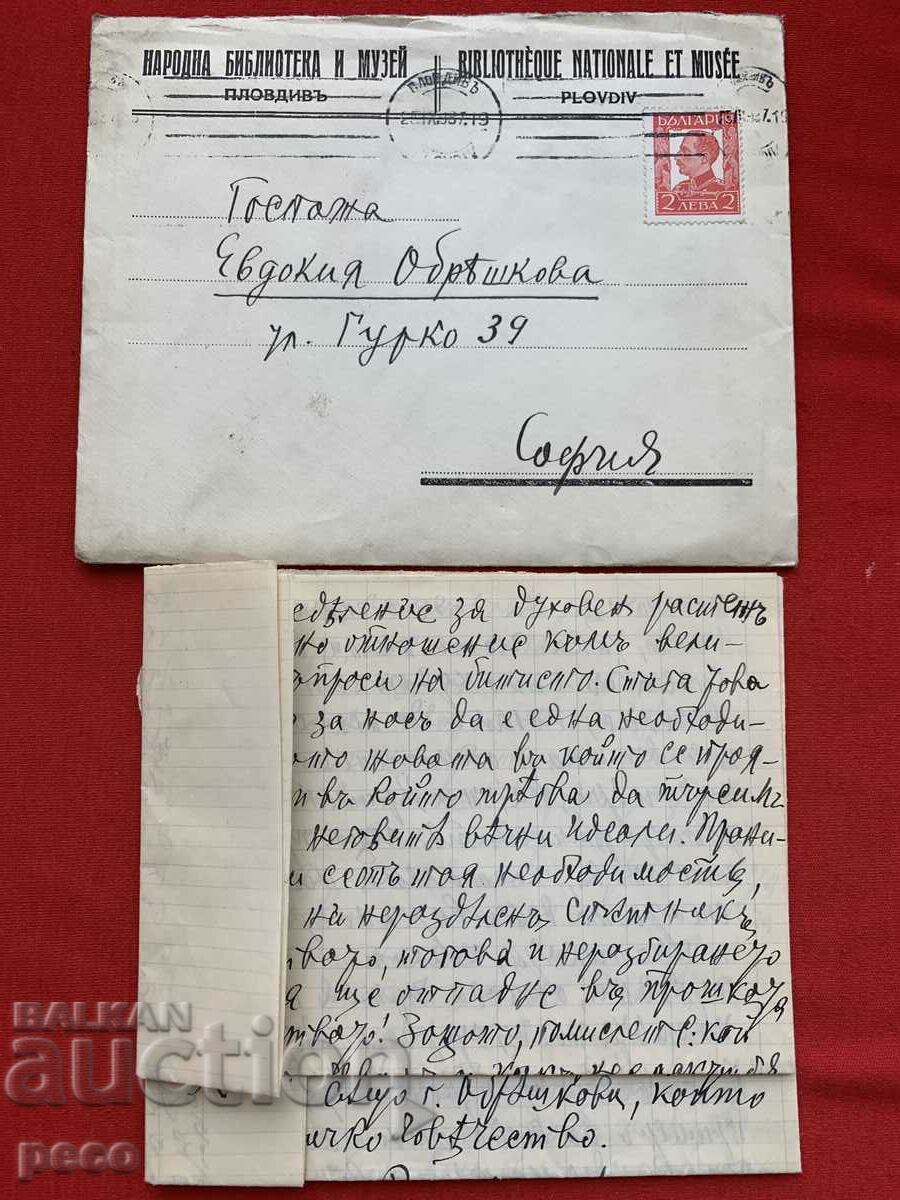 НАРОДНА БИБЛИОТЕКА И МУЗЕЙ
ПЛОВДИВЪ
BIBLIOTHÈQUE NATIONALE ET MUSÉE
PLOVDIV
ПЛОВДИВЪ
БЪЛГАРИЯ
2 ЛЕВА 2
Госпожа
Евдокия Обрѣшкова
ул. Гурко 39
София
за духовен растежъ
но отношение къмъ вели-
проси на битието. Стига това
за насъ да е една необходи-
новата въ който се проя-
въ който трѣбва да търсимъ
неговитѣ вѣчни идеали.
сеотъ тая необходимость,
ни нераздѣленъ спѫтникъ
тогава и неразбирането
ще отпадне въ
Защото, помислете: кой
г. Обрѣшкови, които
чко човѣчество.
BALKAN
auction
peco